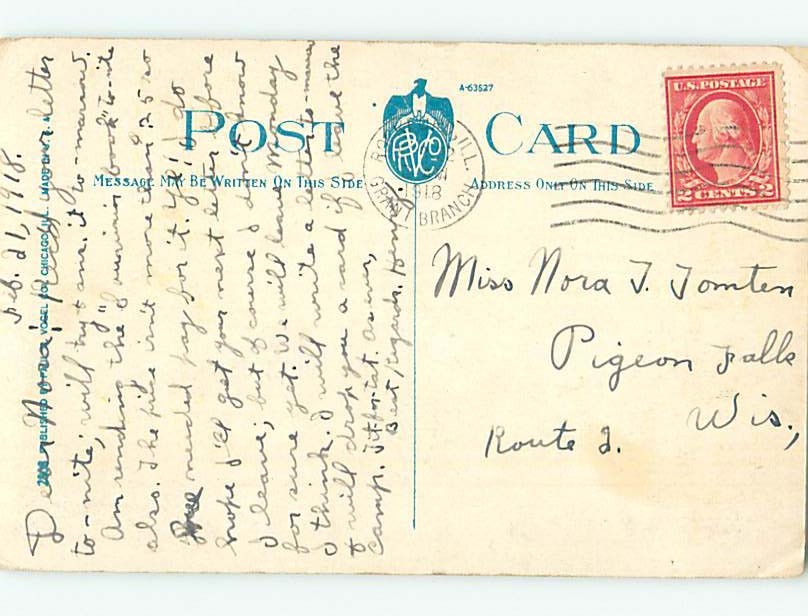 POST CARD
A-63527
MESSAGE MAY BE WRITTEN ON THIS SIDE
ADDRESS ONLY ON THIS SIDE
ILL.
1918
GRANT BRANCH
U.S. POSTAGE
2 CENTS 2
PUBLISHED BY VOGEL CO. CHICAGO, ILL.
Feb. 21, 1918.
Dear Nora: Rec'd your letter
to-nite; will try & ans. it to-morrow.
Am sending the "Reunion book" to-nite
also. The price isn't more than 25 so
needed pay for it. Yes I do
hope I'll get your next letter before
I leave; but of course I don't know
for sure yet. We will leave Monday
I think. I will write a letter to-morrow
& will drop you a card if I leave the
camp. Tit for tat. As ever,
Best regards. Henry.
Miss Nora T. Tomten
Pigeon Falls
Wis.,
Route 2.